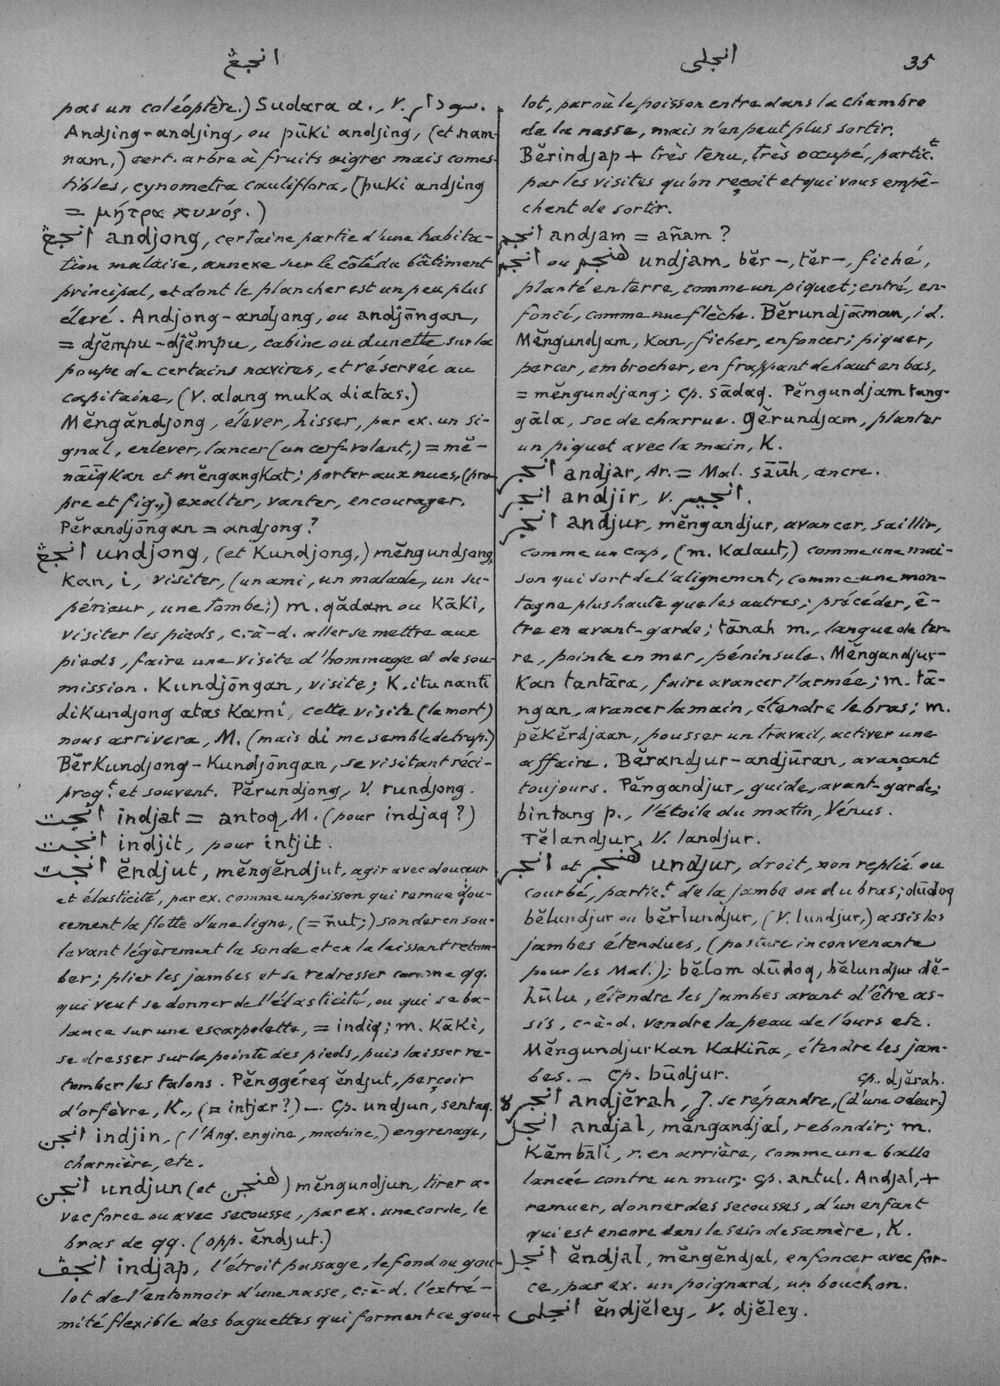 انجڠ
انجلى
35
pas un coléoptère.) Sudara a., v. سودار.
Andjing-andjing, ou pūki andjing, (et nam-
nam,) cert. arbre à fruits aigres mais comes-
tibles, cynometra cauliflora, (puki andjing
= μήτρα κυνός.)
انجڠ andjong, certaine partie d'une habita-
tion malaise, annexe sur le côté du bâtiment
principal, et dont le plancher est un peu plus
élevé. Andjong-andjong, ou andjōngan,
= djĕmpu-djĕmpu, cabine ou dunette sur la
poupe de certains navires, et réservée au
capitaine, (v. alang muka diatas.)
Mĕngăndjong, élever, hisser, par ex. un si-
gnal, enlever, lancer (un cerf-volant,) = mĕ-
nāïgkan et mĕngangkat; porter aux nues, (pro-
pre et fig.,) exalter, vanter, encourager.
Pĕrandjōngan = andjong?
انجڠ undjong, (et kundjong,) mĕngundjong,
kan, i, visiter, (un ami, un malade, un su-
périeur, une tombe;) m. qădam ou kāki,
visiter les pieds, c.-à-d. aller se mettre aux
pieds, faire une visite d'hommage et de sou-
mission. Kundjōngan, visite; K. itu nanti
dikundjong atas kami, cette visite (la mort)
nous arrivera, M. (mais di me semble de trop.)
Bĕrkundjong-kundjōngan, se visitant réci-
proq.t et souvent. Pĕrundjong, v. rundjong.
انجت indjat = antoq, M. (pour indjaq?)
انجت indjit, pour intjit.
انجت ĕndjut, mĕngĕndjut, agir avec douceur
et élasticité, par ex. comme un poisson qui remue dou-
cement la flotte d'une ligne, (= ñut;) sonder en sou-
levant légèrement la sonde et en la laissant retom-
ber; plier les jambes et se redresser comme qq.
qui veut se donner de l'élasticité, ou qui se ba-
lance sur une escarpolette, = indiq; m. kāki,
se dresser sur la pointe des pieds, puis laisser re-
tomber les talons. Pĕnggéreq ĕndjut, perçoir
d'orfèvre, K., (= intjar?) — Cp. undjun, sentaq.
انجن indjin, (l'Ang. engine, machine,) engrenage,
charnière, etc.
انجن undjun (et هنجن) mĕngundjun, tirer a-
vec force ou avec secousse, par ex. une corde, le
bras de qq. (opp. ĕndjut.)
انجڤ indjap, l'étroit passage, le fond ou gou-
lot de l'entonnoir d'une nasse, c.-à-d. l'extré-
mité flexible des baguettes qui forment ce gou-
lot, par où le poisson entre dans la chambre
de la nasse, mais n'en peut plus sortir.
Bĕrindjap + très tenu, très occupé, partic.t
par les visites qu'on reçoit et qui vous empê-
chent de sortir.
انجم andjam = añam?
انجم ou هنجم undjam, bĕr-, tĕr-, fiché,
planté en terre, comme un piquet; entré, en-
foncé, comme une flèche. Bĕrundjāman, id.
Mĕngundjam, kan, ficher, enfoncer; piquer,
percer, embrocher, en frappant de haut en bas,
= mĕngundjang; cp. sādaq. Pĕngundjam tang-
gāla, soc de charrue. Gĕrundjam, planter
un piquet avec la main, K.
انجر andjar, Ar. = Mal. sāūh, ancre.
انجر andjir, v. انجير.
انجر andjur, mĕngandjur, avancer, saillir,
comme un cap, (m. kalaut,) comme une mai-
son qui sort de l'alignement, comme une mon-
tagne plus haute que les autres; précéder, ê-
tre en avant-garde; tānah m., langue de ter-
re, pointe en mer, péninsule. Mĕngandjur-
kan tantāra, faire avancer l'armée; m. tā-
ngan, avancer la main, étendre le bras; m.
pĕkĕrdjaan, pousser un travail, activer une
affaire. Bĕrandjur-andjūran, avançant
toujours. Pĕngandjur, guide, avant-garde;
bintang p., l'étoile du matin, Vénus.
Tĕlandjur, v. landjur.
انجر et هنجر undjur, droit, non replié ou
courbé, partic.t de la jambe ou du bras; dūdoq
bĕlundjur ou bĕrlundjur, (v. lundjur,) assis les
jambes étendues, (posture inconvenante
pour les Mal.); bĕlom dūdoq, bĕlundjur dĕ-
hūlu, étendre les jambes avant d'être as-
sis, c-à-d. vendre la peau de l'ours etc.
Mĕngundjurkan kakiña, étendre les jam-
bes. — Cp. būdjur.
cp. djĕrah.
انجره andjĕrah, J. se répandre, (d'une odeur.)
انجل andjal, mĕngandjal, rebondir; m.
kĕmbāli, r. en arrière, comme une balle
lancée contre un mur; cp. antul. Andjal, +
remuer, donner des secousses, d'un enfant
qui est encore dans le sein de sa mère, K.
انجل ĕndjal, mĕngĕndjal, enfoncer avec for-
ce, par ex. un poignard, un bouchon.
انجلى ĕndjĕley, v. djĕley.